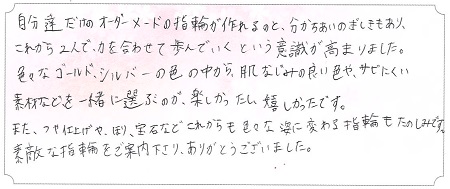 自分達だけのオーダーメードの指輪が作れるのと、分かちあいのぎしきもあり、
これから2人で、力を合わせて歩んでいくという意識が高まりました。
色々なゴールド、シルバーの色の中から、肌なじみの良い色や、サビにくい
素材などを一緒に選ぶのが、楽しかったし、嬉しかったです。
また、つや仕上げや、ほり、宝石などこれからも色々な姿に変わる指輪もたのしみです。
素敵な指輪をご案内下さり、ありがとうございました。